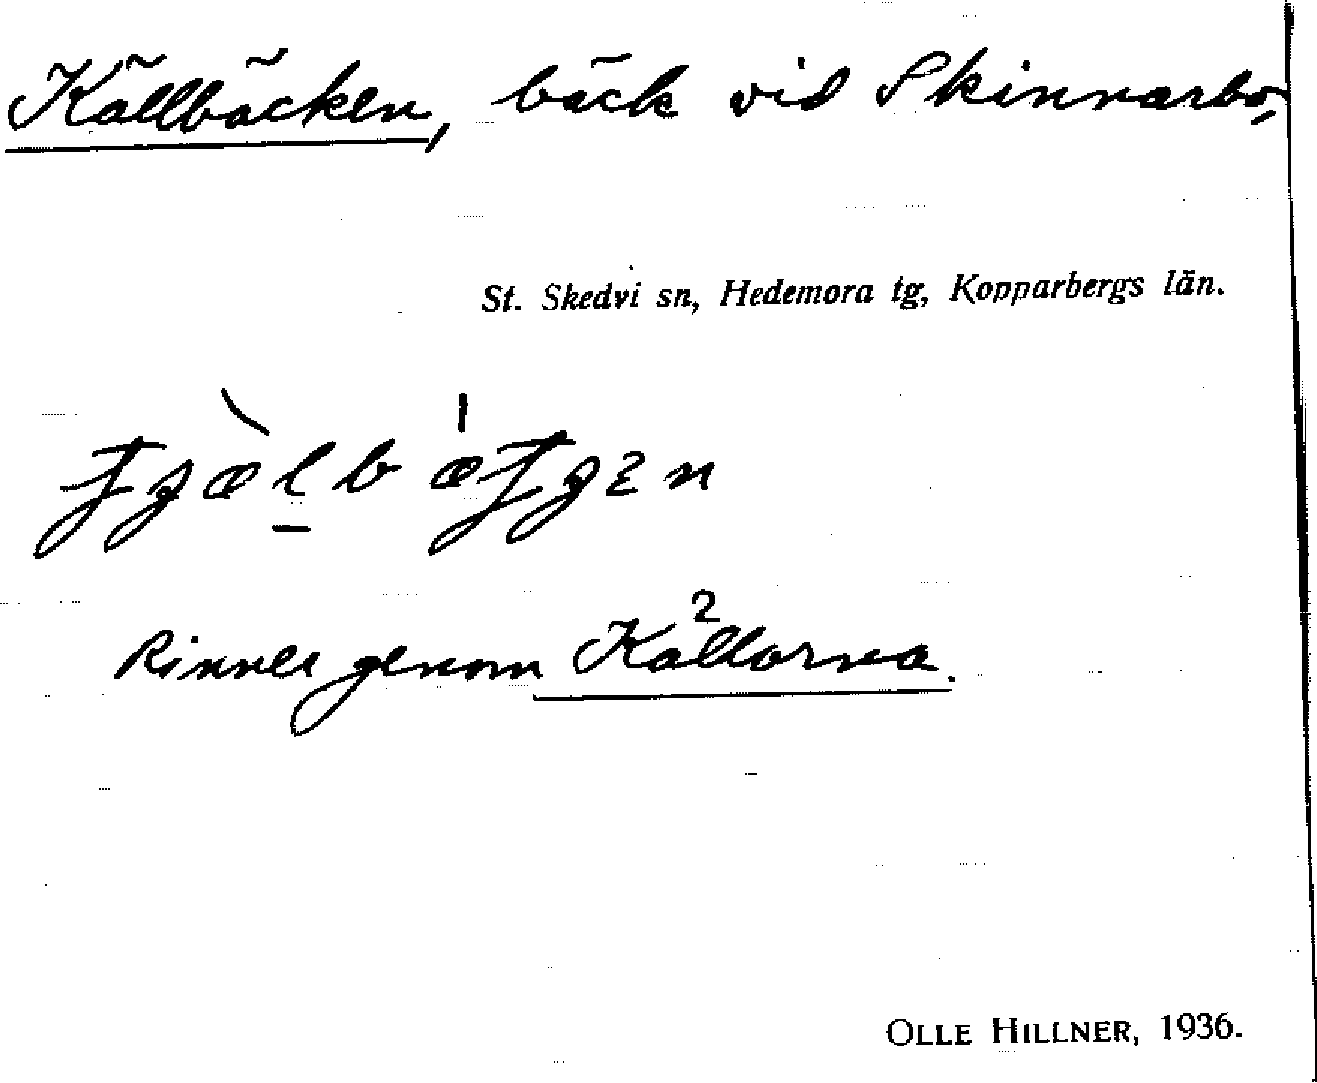 Källbäcken, bäck vid Skinnarbo,
St. Skedvi sn, Hedemora tg, Kopparbergs län.
Rinner genom Källorna.
OLLE HILLNER, 1936.